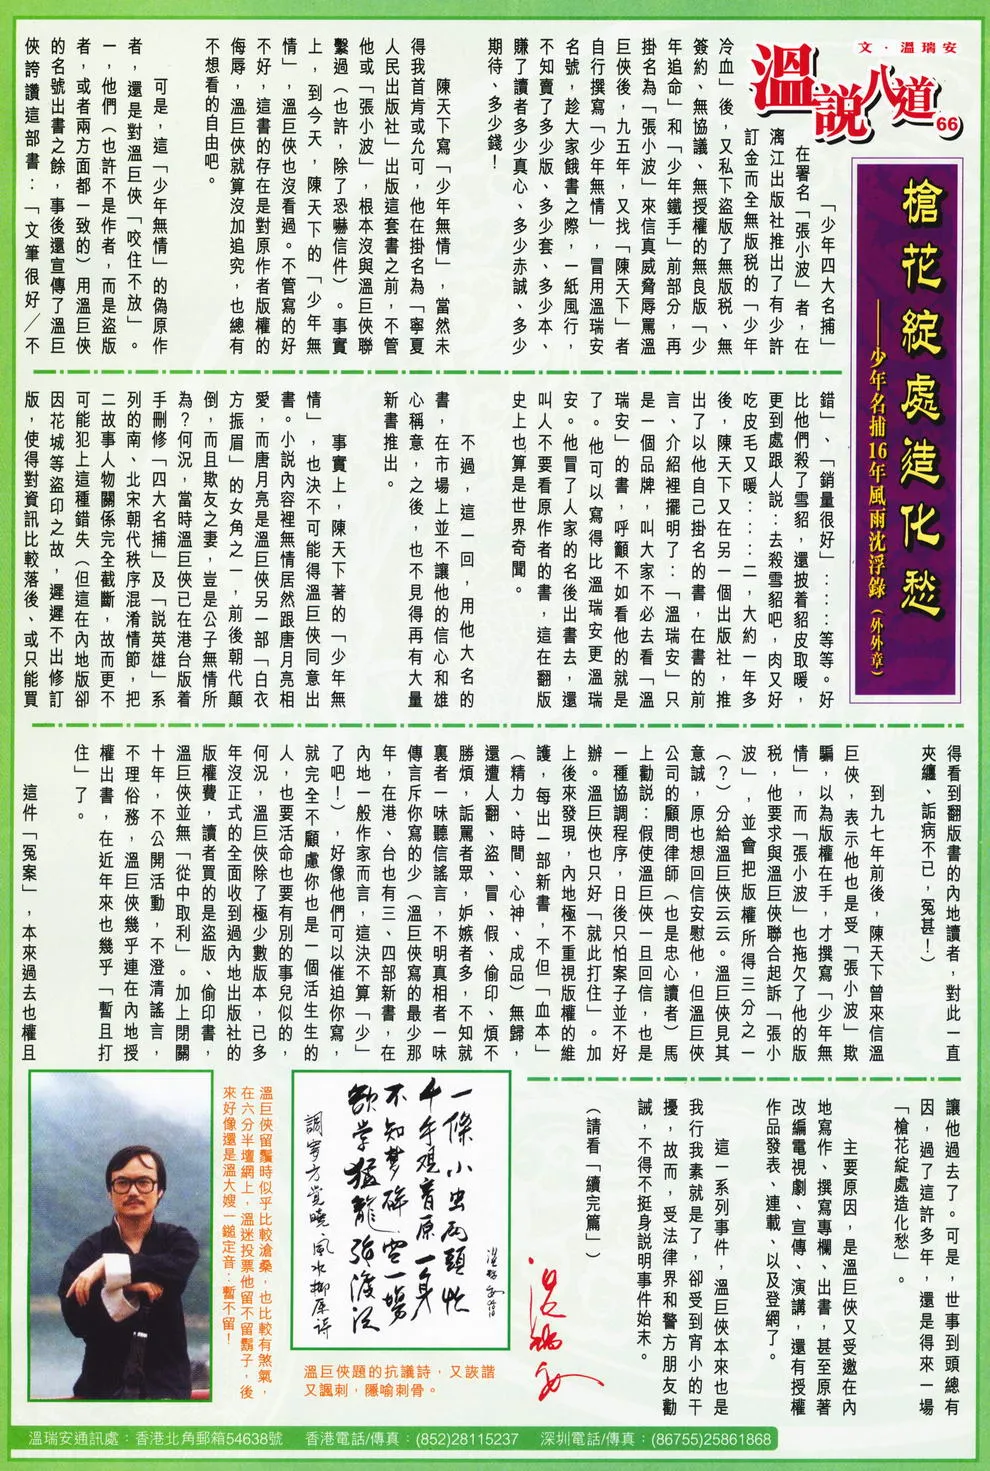 文・溫瑞安
溫說八道
66
槍花綻處造化愁
——少年名捕16年風雨沈浮錄(外外章)
「少年四大名捕」
在署名「張小波」者,在
漓江出版社推出了有少許
訂金而全無版稅的「少年
冷血」後,又私下盜版了無版稅、無
簽約、無協議、無授權的無良版「少
年追命」和「少年鐵手」前部分,再
掛名為「張小波」來信真威脅辱罵溫
巨俠後,九五年,又找「陳天下」者
自行撰寫「少年無情」,冒用溫瑞安
名號,趁大家餓書之際,一紙風行,
不知賣了多少版、多少套、多少本、
賺了讀者多少真心、多少赤誠、多少
期待、多少錢!
陳天下寫「少年無情」,當然未
得我首肯或允可,他在掛名為「寧夏
人民出版社」出版這套書之前,不管
他或「張小波」,根本沒與溫巨俠聯
繫過(也許,除了恐嚇信件)。事實
上,到今天,陳天下的「少年無
情」,溫巨俠也沒看過。不管寫的好
不好,這書的存在是對原作者版權的
侮辱,溫巨俠就算沒加追究,也總有
不想看的自由吧。
可是,這「少年無情」的偽原作
者,還是對溫巨俠「咬住不放」。
一,他們(也許不是作者,而是盜版
者,或者兩方面都一致的)用溫巨俠
的名號出書之餘,事後還宣傳了溫巨
俠誇讚這部書:「文筆很好/不
錯」、「銷量很好」⋯⋯等等。好
比他們殺了雪貂,還披着貂皮取暖,
更到處跟人說:去殺雪貂吧,肉又好
吃皮毛又暖⋯⋯二,大約一年多
後,陳天下又在另一個出版社,推
出了以他自己掛名的書,在書的前
言、介紹裡擺明了:「溫瑞安」只
是一個品牌,叫大家不必去看「溫
瑞安」的書,呼籲不如看他的就是
了。他可以寫得比溫瑞安更溫瑞
安。他冒了人家的名後出書去,還
叫人不要看原作者的書,這在翻版
史上也算是世界奇聞。
不過,這一回,用他大名的
書,在市場上並不讓他的信心和雄
心稱意,之後,也不見得再有大量
新書推出。
事實上,陳天下著的「少年無
情」,也決不可能得溫巨俠同意出
書。小說內容裡無情居然跟唐月亮相
愛,而唐月亮是溫巨俠另一部「白衣
方振眉」的女角之一,前後朝代顛
倒,而且欺友之妻,豈是公子無情所
為?何況,當時溫巨俠已在港台版着
手刪修「四大名捕」及「說英雄」系
列的南、北宋朝代秩序混淆情節,把
二故事人物關係完全截斷,故而更不
可能犯上這種錯失(但這在內地版卻
因花城等盜印之故,遲遲不出修訂
版,使得對資訊比較落後、或只能買
得看到翻版書的內地讀者,對此一直
夾纏、詬病不已,冤甚!)
到九七年前後,陳天下曾來信溫
巨俠,表示他也是受「張小波」欺
騙,以為版權在手,才撰寫「少年無
情」,而「張小波」也拖欠了他的版
稅,他要求與溫巨俠聯合起訴「張小
波」,並會把版權所得三分之一
(?)分給溫巨俠云云。溫巨俠見其
意誠,原也想回信安慰他,但溫巨俠
公司的顧問律師(也是忠心讀者)馬
上勸說:假使溫巨俠一旦回信,也是
一種協調程序,日後只怕案子並不好
辦。溫巨俠也只好「就此打住」。加
上後來發現,內地極不重視版權的維
護,每出一部新書,不但「血本」
(精力、時間、心神、成品)無歸,
還遭人翻、盜、冒、假、偷印、煩不
勝煩,詬罵者眾,妒嫉者多,不知就
裏者一味聽信謠言,不明真相者一味
傳言斥你寫的少(溫巨俠寫的最少那
年,在港、台也有三、四部新書,在
內地一般作家而言,這決不算「少」
了吧!),好像他們可以催迫你寫,
就完全不顧慮你也是一個活生生的
人,也要活命也要有別的事兒似的,
何況,溫巨俠除了極少數版本,已多
年沒正式的全面收到過內地出版社的
版權費,讀者買的是盜版、偷印書,
溫巨俠並無「從中取利」。加上閉關
十年,不公開活動,不澄清謠言,
不理俗務,溫巨俠幾乎連在內地授
權出書,在近年來也幾乎「暫且打
住」了。
這件「冤案」,本來過去也權且
讓他過去了。可是,世事到頭總有
因,過了這許多年,還是得來一場
「槍花綻處造化愁」。
主要原因,是溫巨俠又受邀在內
地寫作、撰寫專欄、出書,甚至原著
改編電視劇、宣傳、演講,還有授權
作品發表、連載、以及登網了。
這一系列事件,溫巨俠本來也是
我行我素就是了,卻受到宵小的干
擾,故而,受法律界和警方朋友勸
誡,不得不挺身說明事件始末。
(請看「續完篇」)
一條小虫兩頭忙
千年觀音原一身
不知夢碎空一場
欲學猛龍強渡江
溫巨俠題的抗議詩,又詼諧
又諷刺,隱喻刺骨。
溫巨俠留鬚時似乎比較滄桑,也比較有煞氣,
在六分半壇網上,溫迷投票他留不留鬍子,後
來好像還是溫大嫂一鎚定音:暫不留!
溫瑞安通訊處:香港北角郵箱54638號 香港電話/傳真:(852)28115237 深圳電話/傳真:(86755)25861868